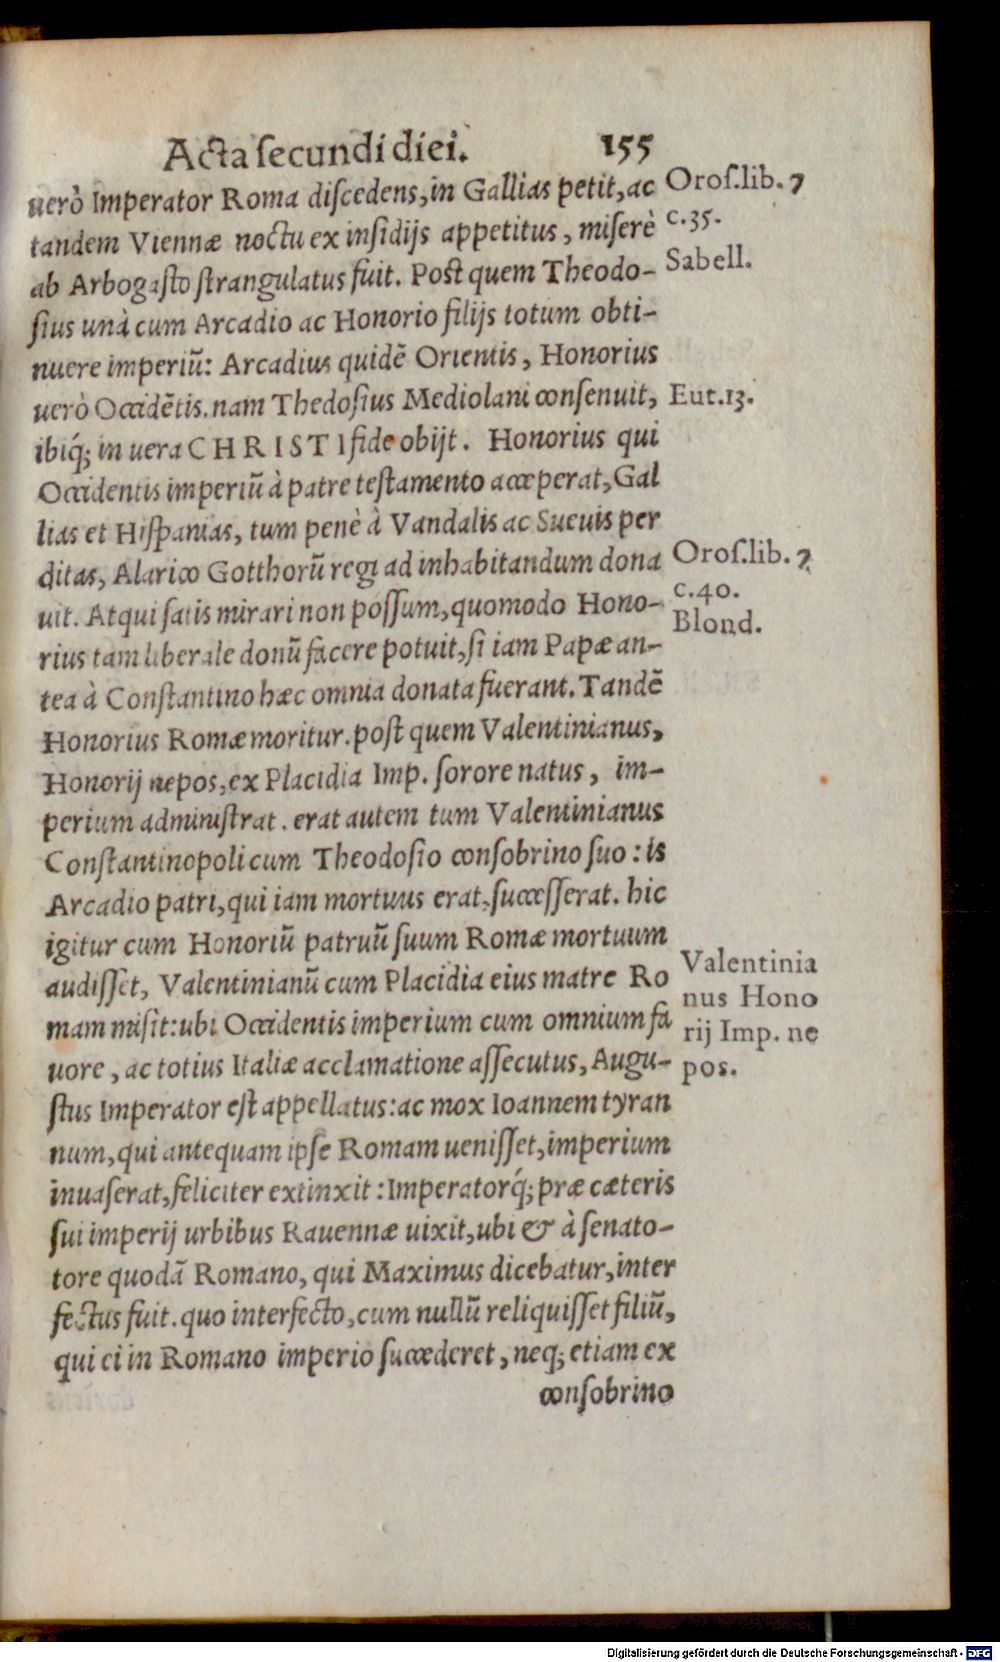 Acta ſecundi diei. 155
uerò Imperator Roma diſcedens, in Gallias petit, ac
tandem Viennæ noctu ex inſidijs appetitus, miſerè
ab Arbogaſto ſtrangulatus fuit. Poſt quem Theodo-
ſius unà cum Arcadio ac Honorio filijs totum obti-
nuere imperiū: Arcadius quidē Orientis, Honorius
uerò Occidētis. nam Thedoſius Mediolani conſenuit,
ibiq́; in uera CHRISTI fide obijt. Honorius qui
Occidentis imperiū à patre teſtamento acceperat, Gal
lias et Hiſpanias, tum penè à Vandalis ac Sueuis per
ditas, Alarico Gotthorū regi ad inhabitandum dona
uit. Atqui ſatis mirari non poſſum, quomodo Hono-
rius tam liberale donū facere potuit, ſi iam Papæ an-
tea à Conſtantino hæc omnia donata fuerant. Tandē
Honorius Romæ moritur. poſt quem Valentinianus,
Honorij nepos, ex Placidia Imp. ſorore natus, im-
perium adminiſtrat. erat autem tum Valentinianus
Conſtantinopoli cum Theodoſio conſobrino ſuo: is
Arcadio patri, qui iam mortuus erat, ſucceſſerat. hic
igitur cum Honoriū patruū ſuum Romæ mortuum
audiſſet, Valentinianū cum Placidia eius matre Ro
mam miſit: ubi Occidentis imperium cum omnium fa
uore, ac totius Italiæ acclamatione aſſecutus, Augu-
ſtus Imperator eſt appellatus: ac mox Ioannem tyran
num, qui antequam ipſe Romam ueniſſet, imperium
inuaſerat, feliciter extinxit: Imperatorq́; præ cæteris
ſui imperij urbibus Rauennæ uixit, ubi & à ſenato-
tore quodā Romano, qui Maximus dicebatur, inter
fectus fuit. quo interfecto, cum nullū reliquiſſet filiū,
qui ei in Romano imperio ſuccederet, neq; etiam ex
conſobrino
Oroſ. lib. 7
c.35.
Sabell.
Eut.13.
Oroſ. lib. 7
c.40.
Blond.
Valentinia
nus Hono
rij Imp. ne
pos.
Digitalisierung gefördert durch die Deutsche Forschungsgemeinschaft - DFG